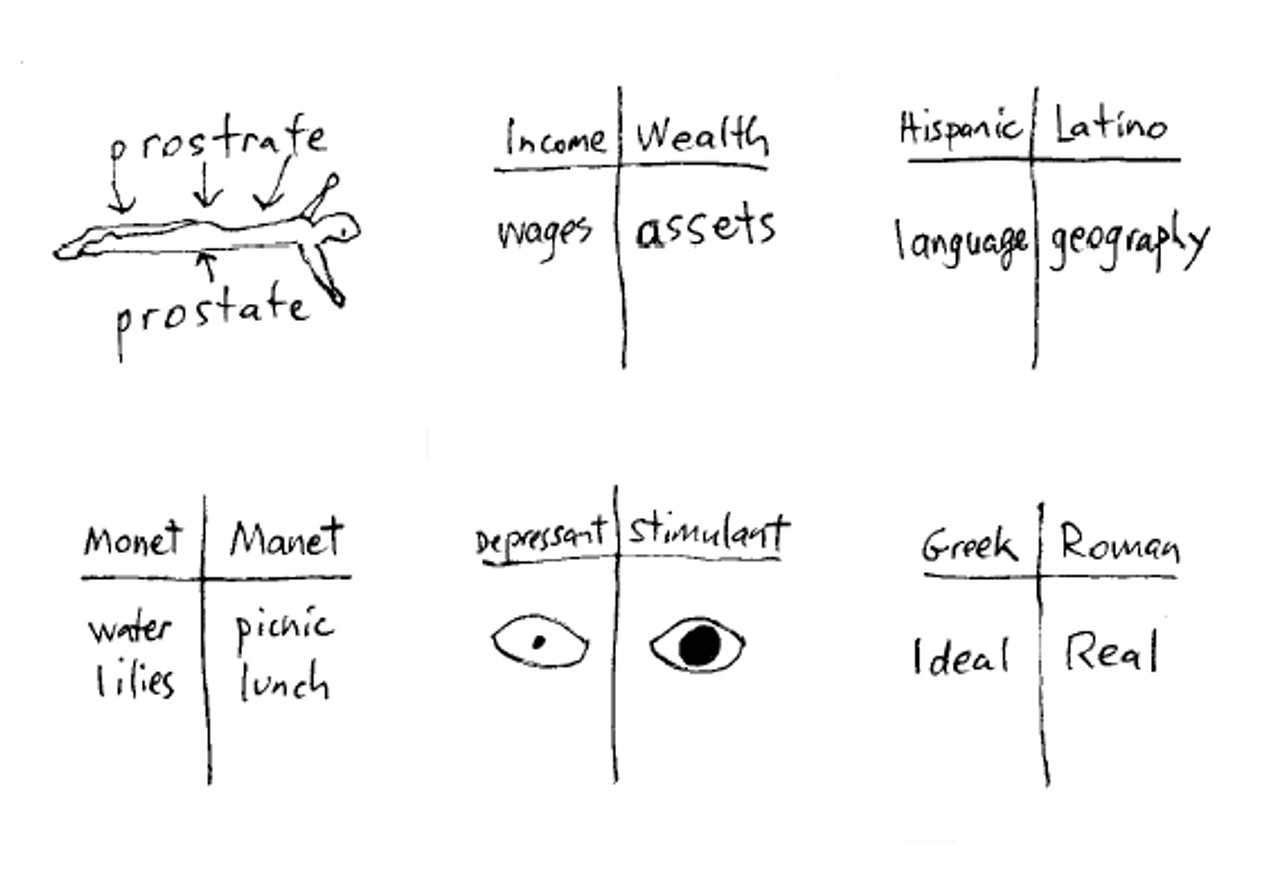 prostrate
prostate
Income Wealth
wages assets
Hispanic Latino
language geography
Monet Manet
water picnic
lilies lunch
Depressant Stimulant
Greek Roman
Ideal Real